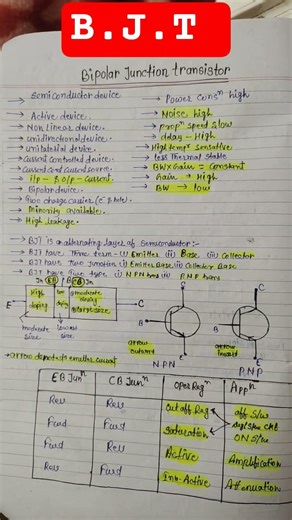 B.J.T
Bipolar Junction transistor
→ Semiconductor device
→ Active device.
→ Non linear device.
→ unidirectional device.
→ unilateral device.
→ Current controlled device.
→ Current cont current source.
→ i/p - & o/p - current.
→ Bipolar device.
→ Two charge carrier
→ Minority available.
→ High leakage.
→ Power Consⁿ high
→ Noise high
→ propⁿ speed slow
→ delay - High
→ High tempʳ sensative
→ less thermal stable
→ BW x Gain = Constant
→ Gain → High
→ BW → low
→ BJT is a alternating layer of Semiconductor :-
→ BJT have Three term - i) Emitter ii) Base iii) Collector
→ BJT have two Junction i) Emitter Base ii) Collector Base
→ BJT have two type i) NPN trans ii) P.N.P trans
In EB | P CB In
E
High doping
low doping
moderate doping
largest size
C
B
moderate size
lowest size
C
B
E
arrow outward
N P N
C
B
E
arrow inward
P.N.P
→ arrow denote → emitter current
EB Junⁿ
CB Junⁿ
Oper Regⁿ
Appⁿ
Rev
Rev
Cut off Reg
off S/w
Fwd
Fwd
Saturation
ON S/w
Fwd
Rev
Active
Amplification
Rev
Fwd
Inv. Active
Attenuation